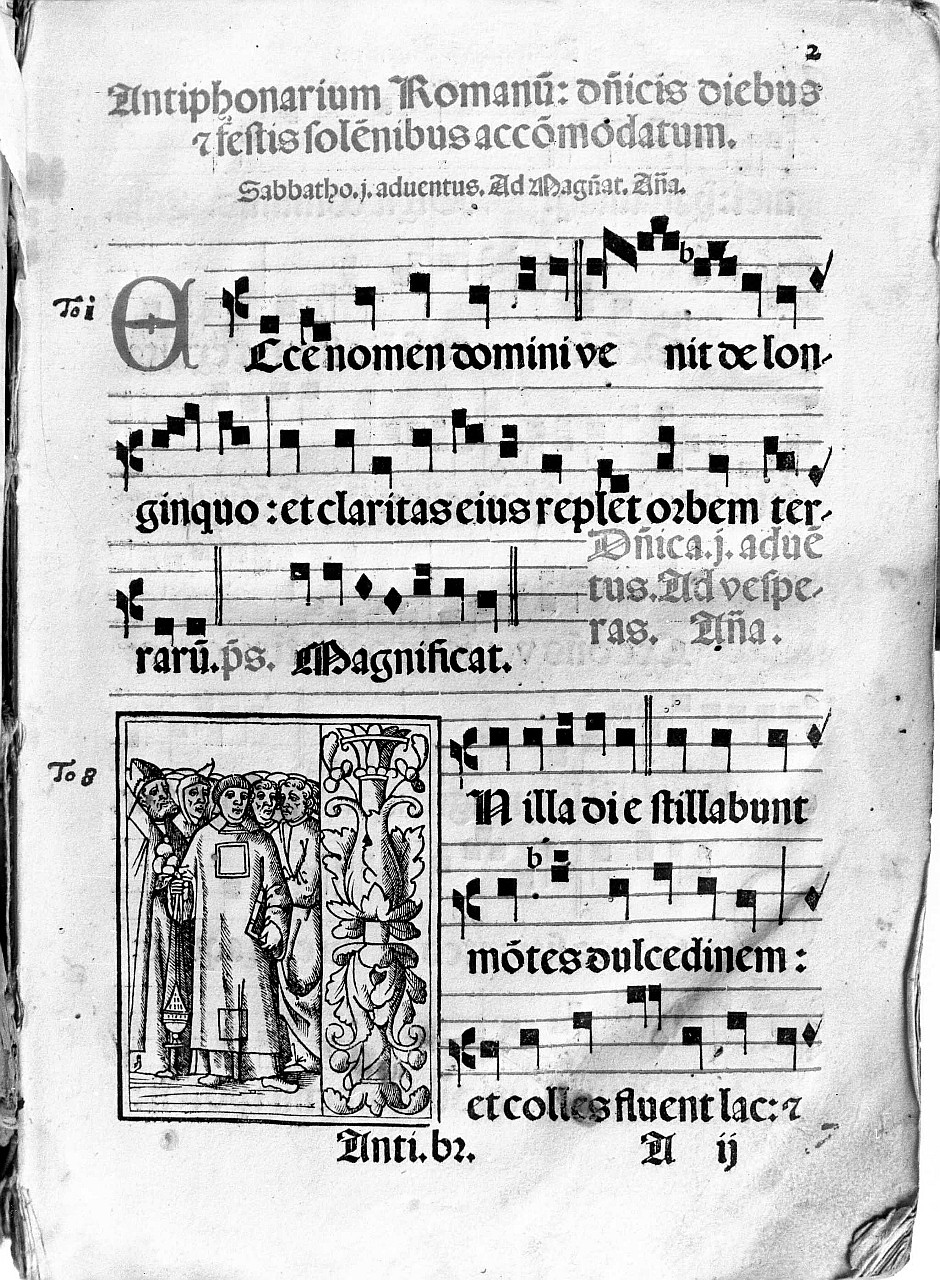 2
Antiphonarium Romanū: dñicis diebus
⁊ festis solēnibus accōmodatum.
Sabbatho.j. aduentus. Ad Magñat. Aña.
To i
b
E Cce nomen domini ve nit de lon-
ginquo : et claritas eius replet orbem ter-
Dñica.j. aduē
tus. Ad vespe-
ras. Aña.
rarū. p̄s. Magnificat.
To 8
N illa di e stillabunt
b
mōtes dulcedinem :
et colles fluent lac: ⁊
Anti. br. A ij